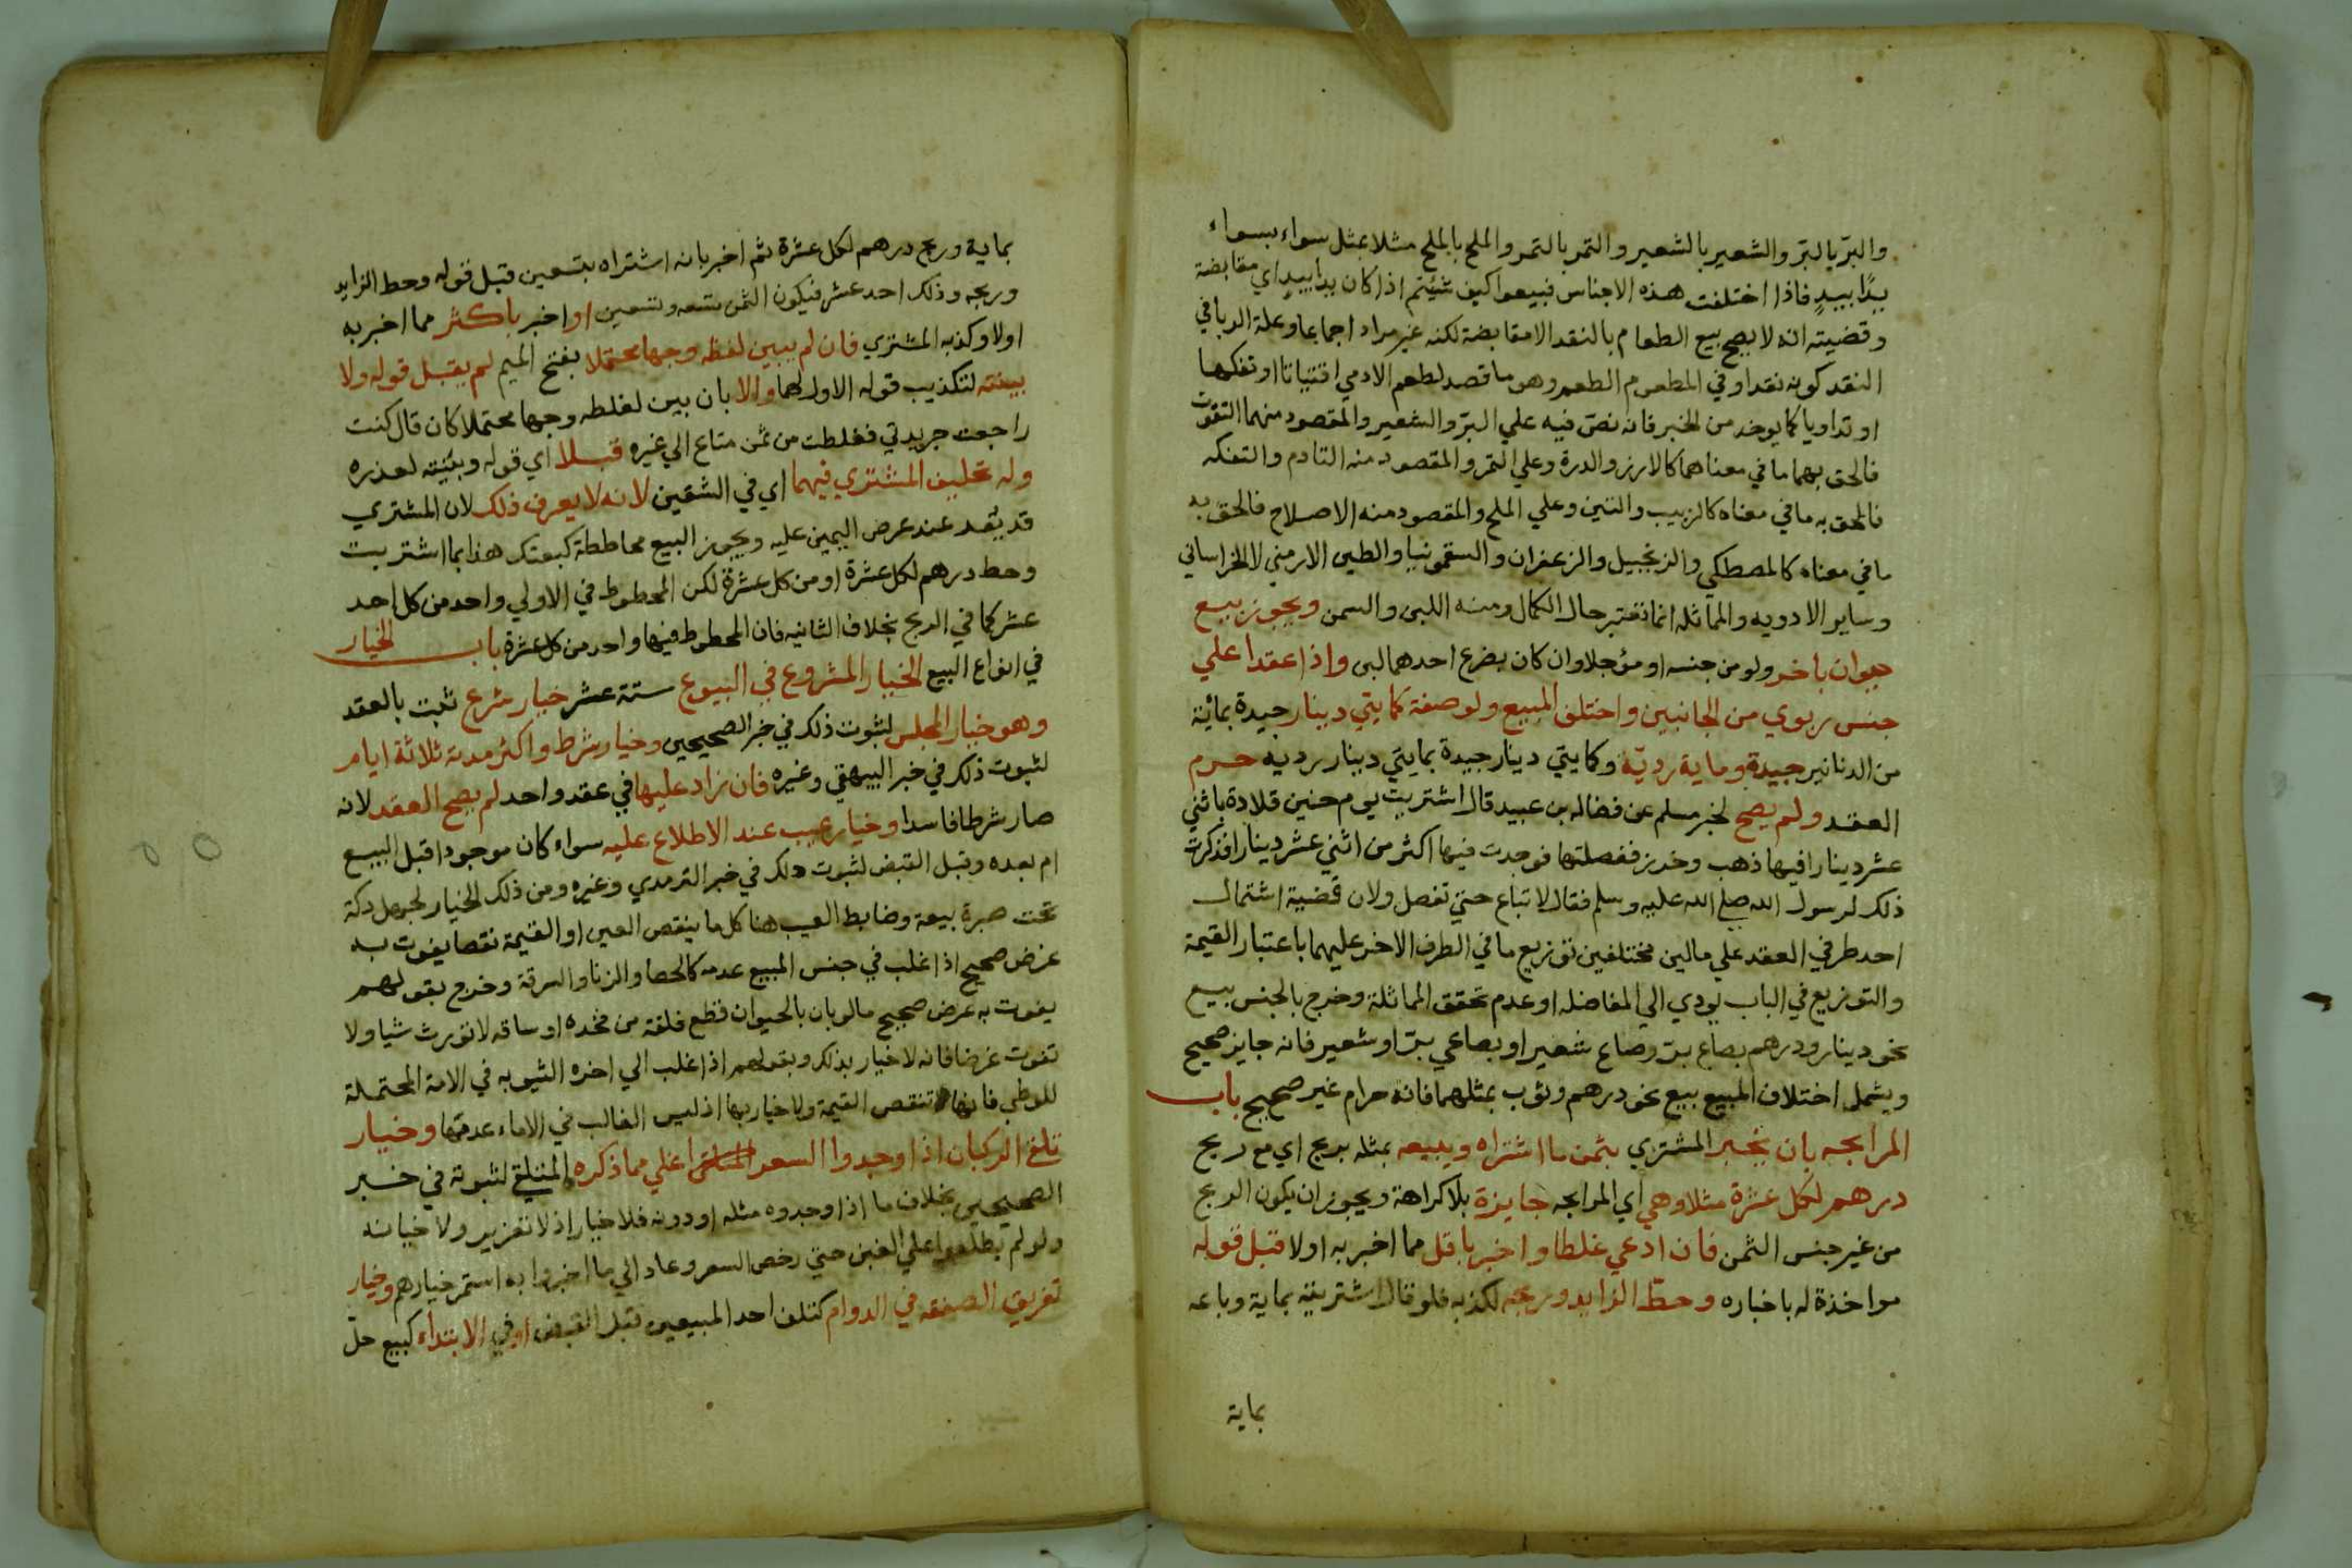 والبرّ بالبرّ والشعير بالشعير والتمر بالتمر والملح بالملح مثلا بمثل سواء بسواء
يدًا بيدٍ فاذا اختلفت هذه الاجناس فبيعوا كيف شئتم اذا كان يدا بيدٍ اي مقابضة
وقضيته انه لا يصح بيع الطعام بالنقد الا مقابضة لكنه غير مراد اجماعا وعلة الربا في
النقد كونه نقدا وفي المطعوم الطعم وهو ما قصد لطعم الادمي اقتياتا او تفكها
او تداويا كما يوخد من الخبر فانه نصّ فيه علي البرّ والشعير والمقصود منهما التقوت
فالحق بهما ما في معناهما كالارز والدرة وعلي التمر والمقصود منه التادم والتفكه
فالحق به ما في معناه كالزبيب والتين وعلي الملح والمقصود منه الاصلاح فالحق به
ما في معناه كالمصطكي والزنجبيل والزعفران والسقمونيا والطين الارمني لا الخراساني
وساير الادويه والمماثله انما تعتبر حال الكمال ومنه اللبن والسمن ويجوز بيع
حيوان باخر ولو من جنسه او مؤجلا وان كان بضرع احدهما لبن واذا عقدا علي
جنس ربوي من الجانبين واختلف المبيع ولو صفة كمايتي دينار جيدة بمائة
من الدنانير جيدة وماية رديّة وكمايتي دينار جيدة بمايتي دينار رديه حرم
العقد ولم يصح لخبر مسلم عن فضاله بن عبيد قال اشتريت يوم حنين قلادة باثني
عشر دينارا فيها ذهب وخرز ففصلتها فوجدت فيها اكثر من اثني عشر دينارا فذكرت
ذلك لرسول الله صلى الله عليه وسلم فقال لا تباع حتي تفصل ولان قضية اشتمال
احد طرفي العقد علي مالين مختلفين توزيع ما في الطرف الاخر عليهما باعتبار القيمة
والتوزيع في الباب يودي الي المفاضله او عدم تحقق المماثلة وخرج بالجنس بيع
نحو دينار ودرهم بصاع برّ وصاع شعير او بصاعي برّ او شعير فانه جايز صحيح
ويشمل اختلاف المبيع بيع نحو درهم وثوب بمثلهما فانه حرام غير صحيح باب
المرابحه بان يخبر المشتري بثمن ما اشتراه ويبيعه بمثله بربح اي مع ربح
درهم لكل عشرة مثلا وهي اي المرابحه جايزة بلا كراهة ويجوز ان يكون الربح
من غير جنس الثمن فان ادعي غلطا واخبر باقل مما اخبر به اولا قبل قوله
مواخذة له باخباره وحطّ الزايد وربحه لكذبه فلو قال اشتريته بماية وباعه
بماية
بماية وربح درهم لكل عشرة ثم اخبر بانه اشتراه بتسعين قبل قوله وحط الزايد
وربحه وذلك احد عشر فيكون الثمن تسعه وتسعين او اخبر باكثر مما اخبر به
اولا وكذبه المشتري فان لم يبين لغلطه وجها محتملا بفتح الميم لم يقبل قوله ولا
بينته لتكذيب قوله الاول لهما والا بان بين لغلطه وجها محتملا كان قال كنت
راجعت جريدتي فغلطت من ثمن متاع الي غيره قبلا اي قوله وبيّنته لعذره
وله تحليف المشتري فيهما اي في الشقين لانه لا يعرف ذلك لان المشتري
قد يقد عند عرض اليمين عليه ويجوز البيع محاططة كبعتك هذا بما اشتريت
وحط درهم لكل عشرة او من كل عشرة لكن المحطوط في الاولي واحد من كل احد
عشر كما في الربح بخلاف الثانيه فان المحطوط فيها واحد من كل عشرة باب الخيار
في انواع البيع الخيار المشروع في البيوع ستة عشر خيار شرع ثبت بالعقد
وهو خيار المجلس لثبوت ذلك في خبر الصحيحين وخيار شرط واكثر مدته ثلاثة ايام
لثبوت ذلك في خبر البيهقي وغيره فان زاد عليها في عقد واحد لم يصح العقد لانه
صار شرطا فاسدا وخيار عيب عند الاطلاع عليه سواء كان موجودا قبل البيع
ام بعده وقبل القبض لثبوت دلك في خبر الترمدي وغيره ومن ذلك الخيار لجهل دكة
تحت صبرة بيعة وضابط العيب هنا كل ما ينقص العين او القيمة نقصا يفوت به
غرض صحيح اذا غلب في جنس المبيع عدمه كالخصا والزنا والسرقة وخرج بقولهم
يفوت به غرض صحيح ما لو بان بالحيوان قطع فلقة من فخده او ساقه لا تورث شيا ولا
تفوت غرضا فانه لا خيار بذلك وبقولهم اذا غلب الي اخره الثيوبه في الامة المحتملة
للوطي فانها تنقص القيمة ولا خيار بها اذ ليس الغالب في الاماء عدمها وخيار
تلقي الركبان اذا وجدوا السعر اغلي مما ذكره المتلقي لثبوته في خبر
الصحيحين بخلاف ما اذا وجدوه مثله او دونه فلا خيار اذ لا تغرير ولا خيانه
ولو لم يطلعوا علي الغبن حتي رخص السعر وعاد الي ما اخبروا به استمر خيارهم وخيار
تفريق الصفقه في الدوام كتلف احد المبيعين قبل القبض او في الابتداء كبيع حلّ